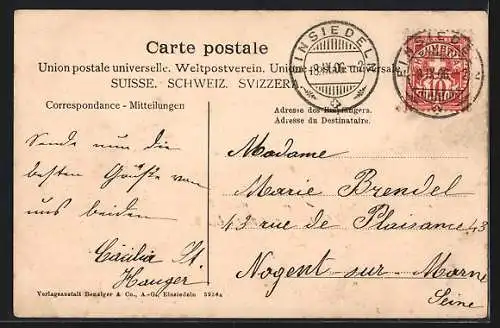 Carte postale
Union postale universelle. Weltpostverein. Unione postale universale
SUISSE. SCHWEIZ. SVIZZERA
EINSIEDELN
EINSIEDELN
10
Correspondance - Mitteilungen
Adresse des Empfängers.
Adresse du Destinataire.
Sende nun die
besten Grüße von
uns beiden
Cäcilia St.
Hauger
Madame
Marie Brendel
43 rue de Plaisance 43
Nogent-sur-Marne
Seine
Verlagsanstalt Benziger & Co., A.-G., Einsiedeln 5924a